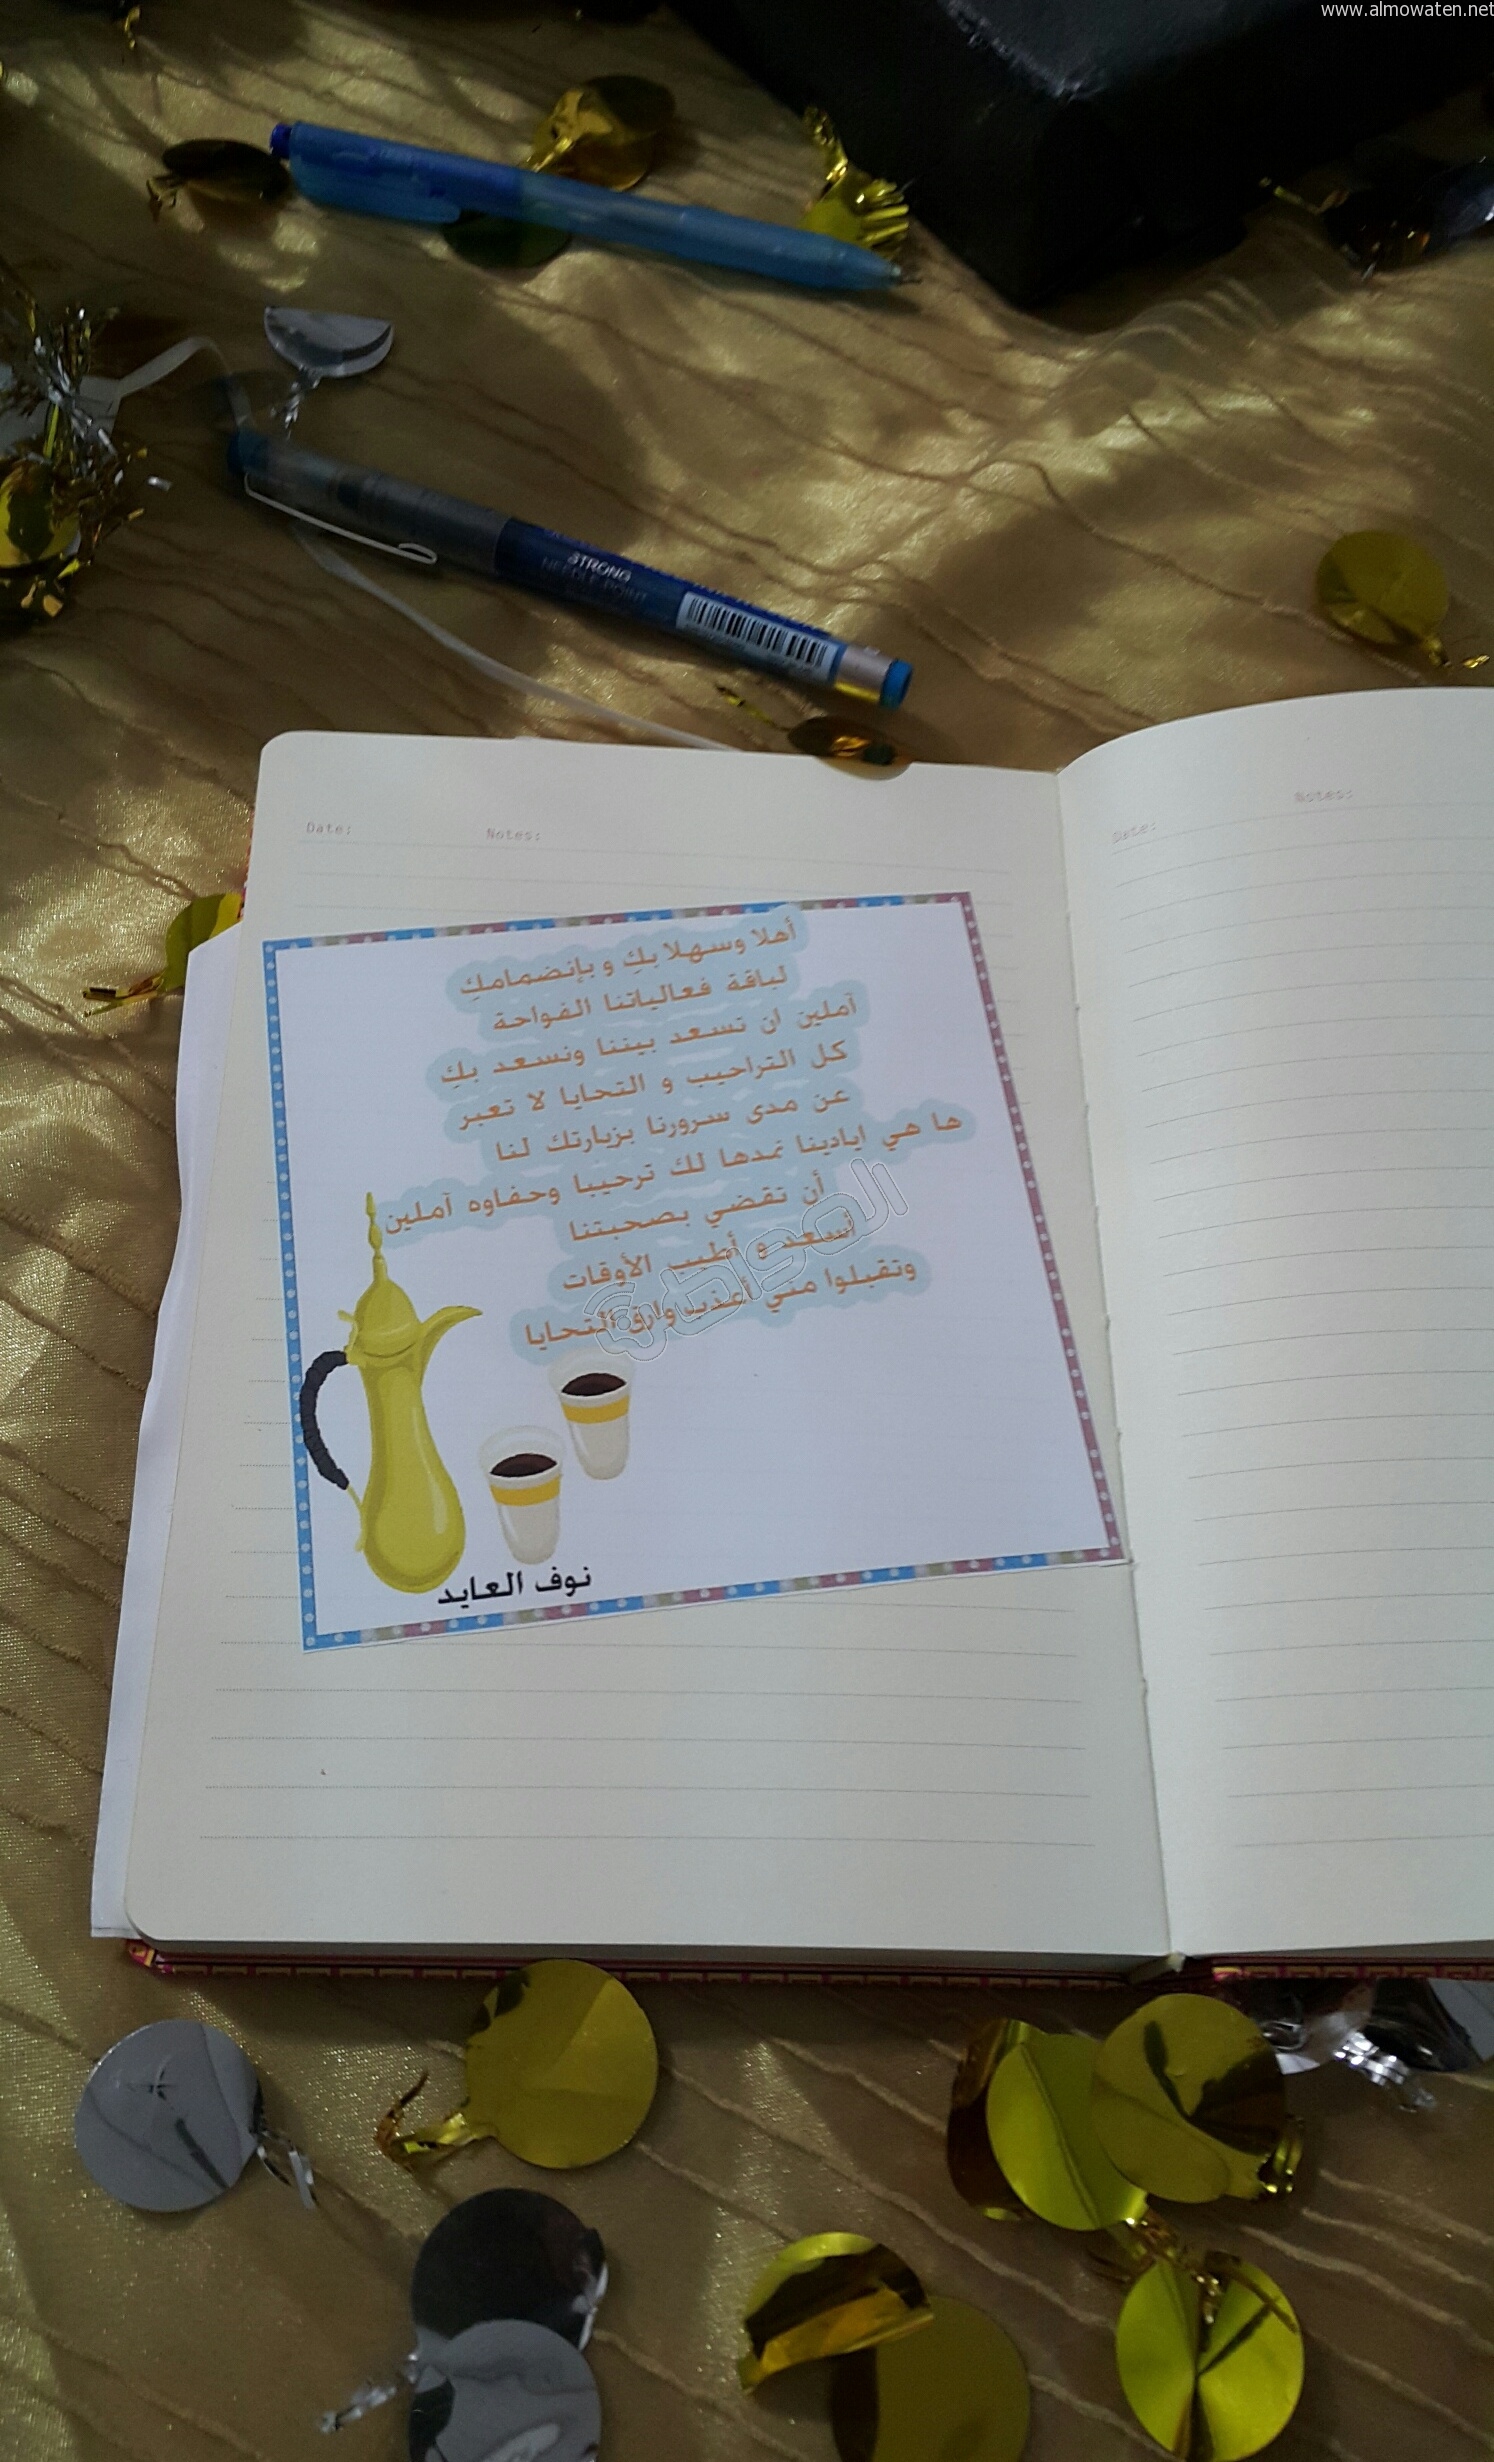 www.almowaten.net
STRONG
NEEDLE POINT
Date: Notes:
Date: Notes:
أهلا وسهلا بكِ و بإنضمامكِ
لباقة فعالياتنا الفواحة
آملين ان تسعد بيننا ونسعد بكِ
كل التراحيب و التحايا لا تعبر
عن مدى سرورنا بزيارتك لنا
ها هي ايادينا نمدها لك ترحيبا وحفاوه آملين
أن تقضي بصحبتنا
أسعد و أطيب الأوقات
وتقبلوا مني أعذب وارق التحايا
المواطن
نوف العايد